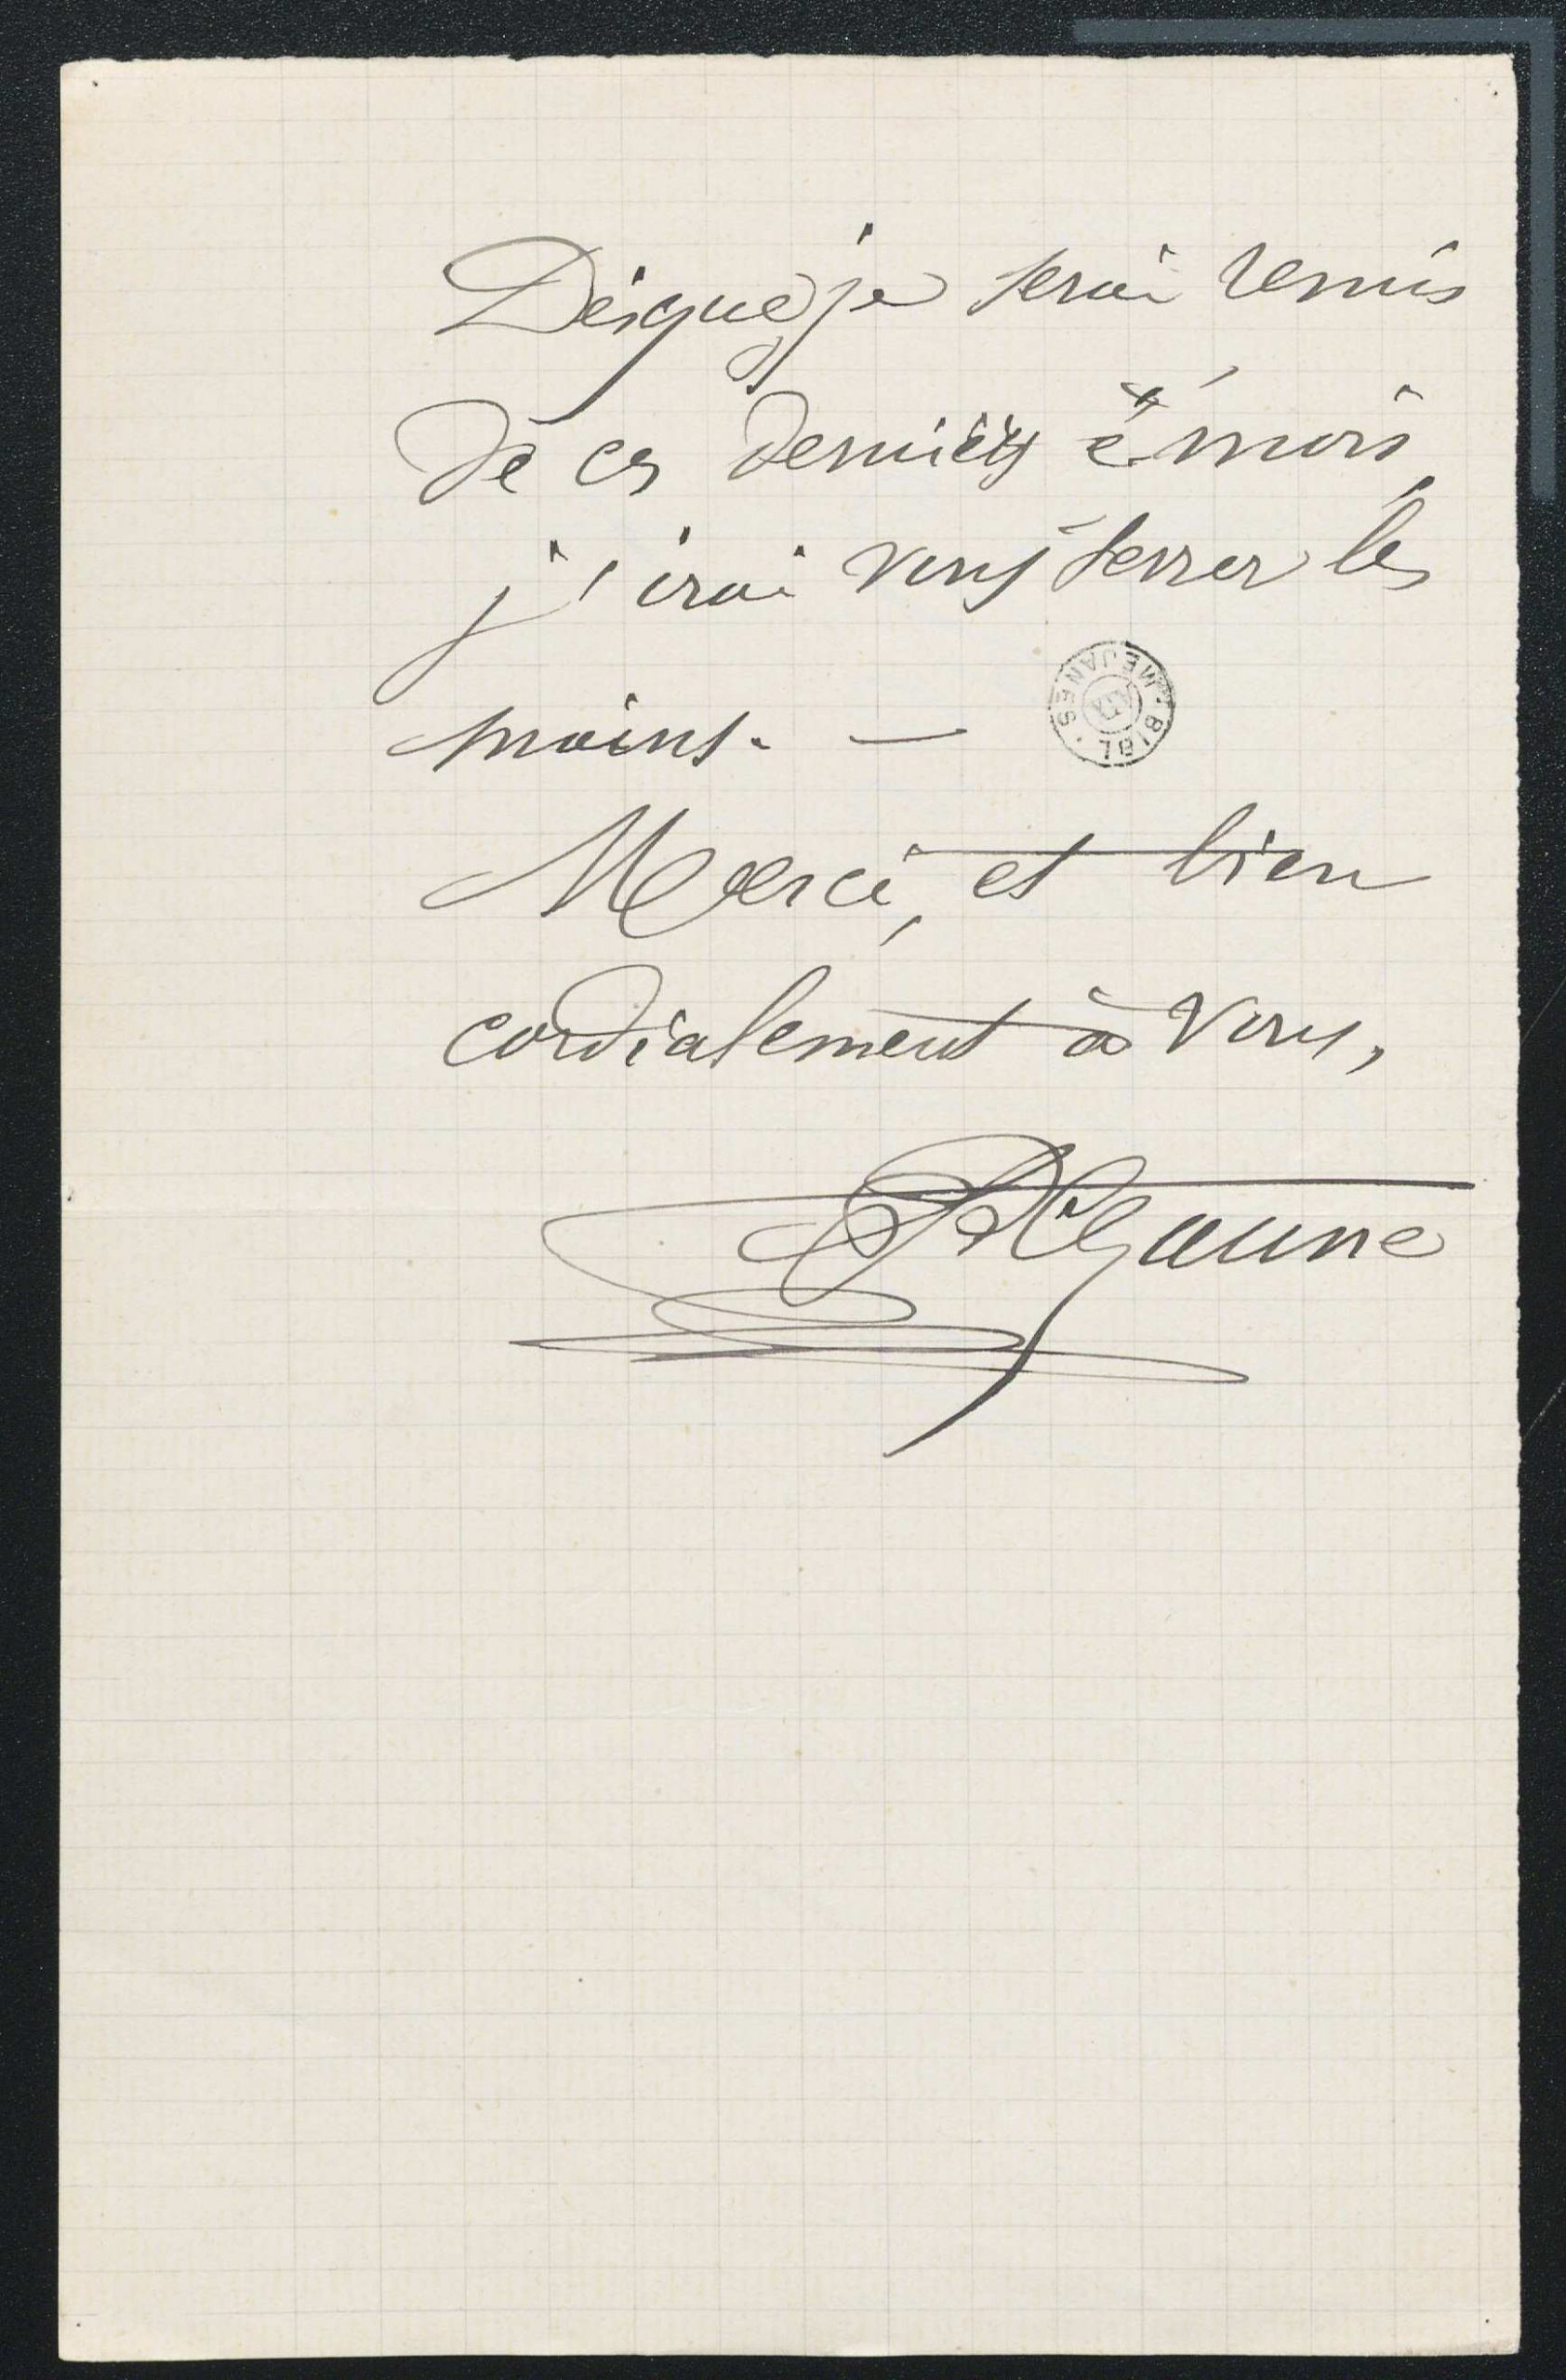 Dès que je serai remis
de ces derniers émois,
j'irai vous serrer les
mains. —
BIBL. MEJANES AIX
Merci, et bien
cordialement à vous,